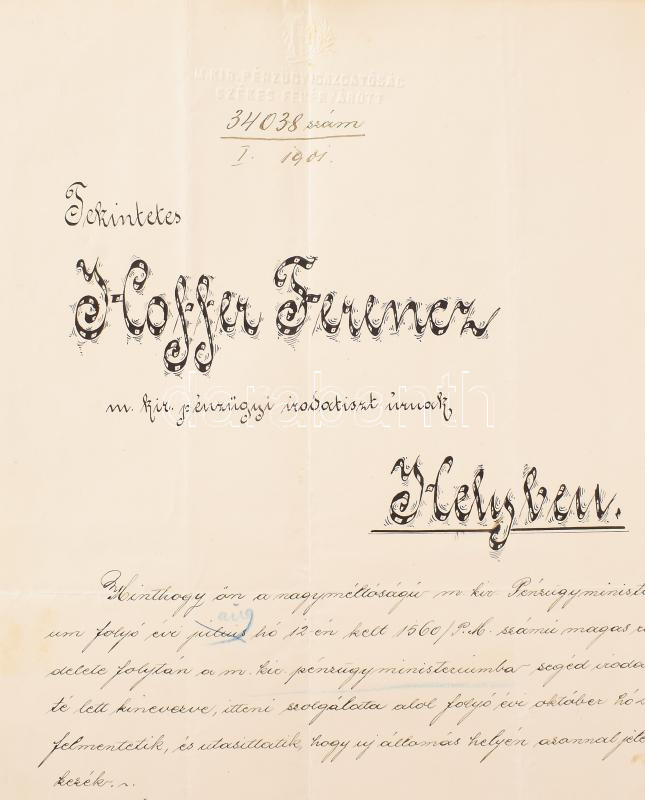 M. KIR. PÉNZÜGYIGAZGATÓSÁG
SZÉKESFEHÉRVÁROTT
34038 szám
I. 1901.
Tekintetes
Hoffer Ferencz
m. kir. pénzügyi irodatiszt úrnak
darabanth
Helyben.
Minthogy ön a nagyméltóságú m. kir. Pénzügyministeri
um folyó évi julius hó 12-én kelt 1560/P.M. számú magas ren
aug
delete folytán a m. kir. pénzügyministeriumba segéd iroda
té lett kinevezve, itteni szolgálata alol folyó évi október hó
felmentetik, és utasittatik, hogy uj állomás helyén azonnal jele
kezék.